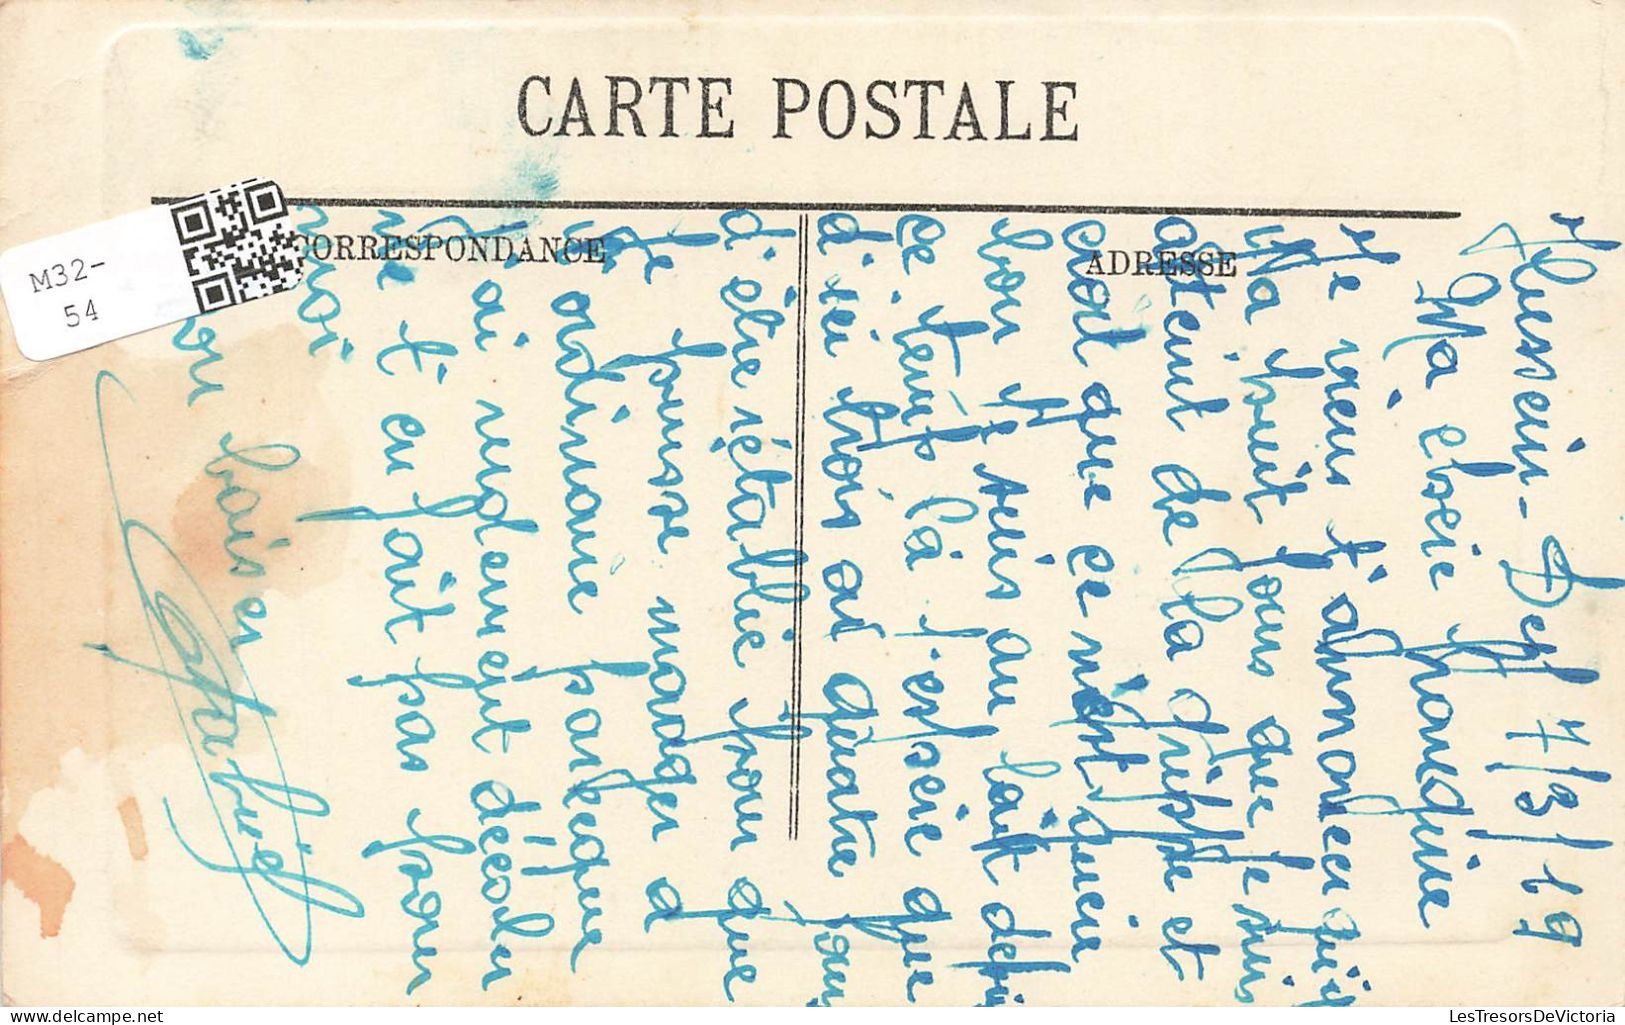 CARTE POSTALE
CORRESPONDANCE
ADRESSE
M32-
54
Hussein-Dey 7/3/19
Ma chère Françoise
Je viens t'annoncer qu'il
y a huit jours que je suis
atteint de la grippe et
crois que ce n'est guère
bon Je suis au lait depuis
ce temps là j'espère que
d'ici trois ou quatre jours
d'être rétablie pour que
je puisse manger à
l'ordinaire parceque
j'ai rudement décolu
ne t'en fait pas pour
moi
Bon baiser
Gabriel
LesTresorsDeVictoria